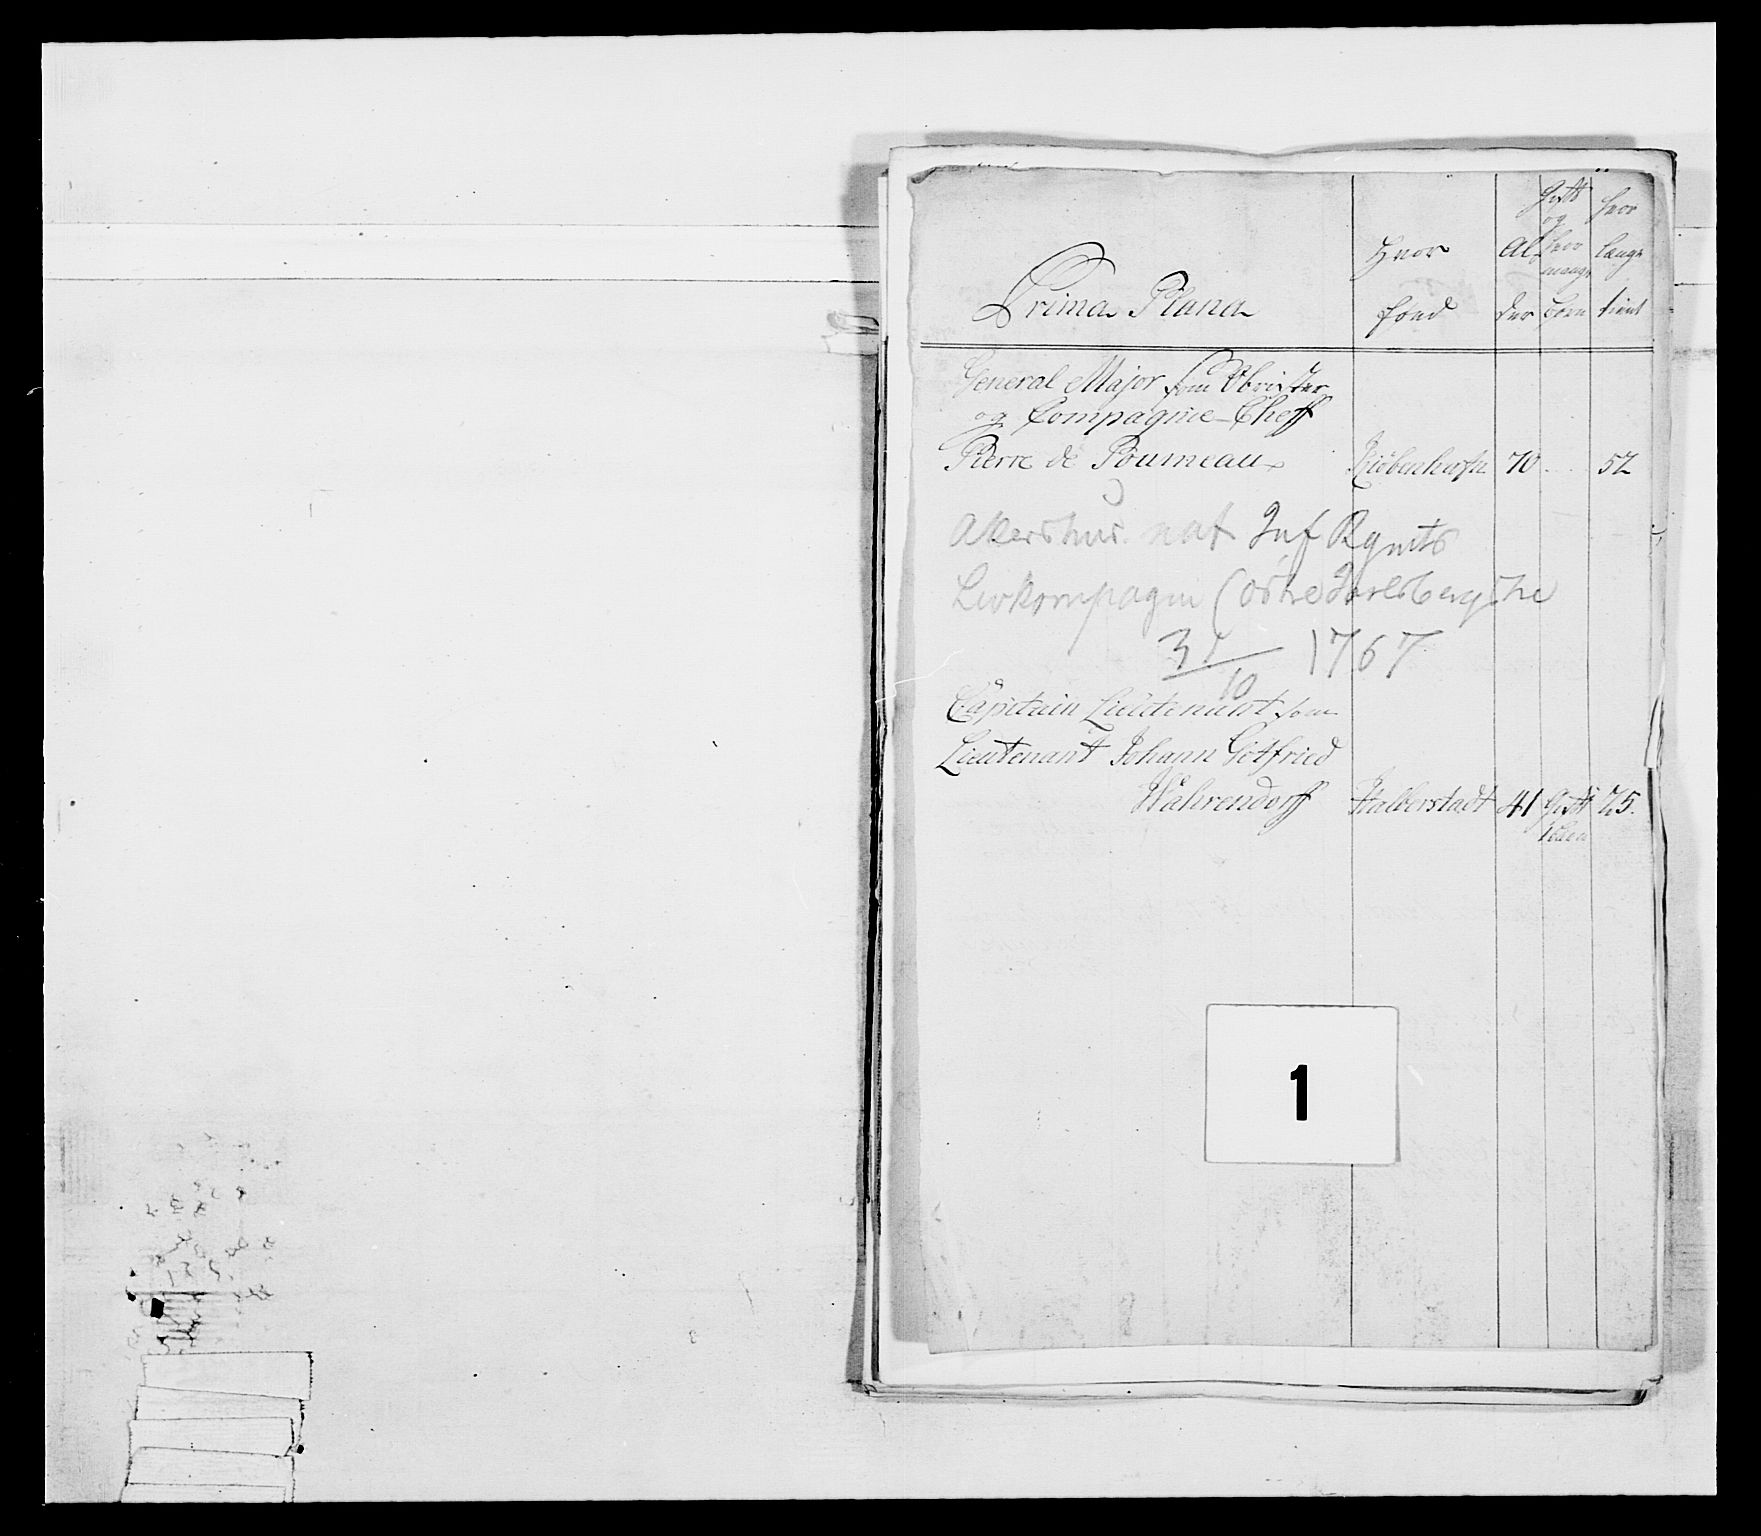 Prima Plana
Hvor
fød
Al,
der
Gift
og
hvor
mange
børn
hvor
længe
tient
General Major som Obrister
og Compagnie-Cheff
Pierre de Poumeau Kiöbenhafn 70 52
Akershus nat Inf Rgmts
Livkompagni (Østre Jarlsbergske
31/10 1767
Capitain Lieutenant som
Lieutenant Johann Gotfried
Wahrendorff Halberstadt 41 Gift 25.
1